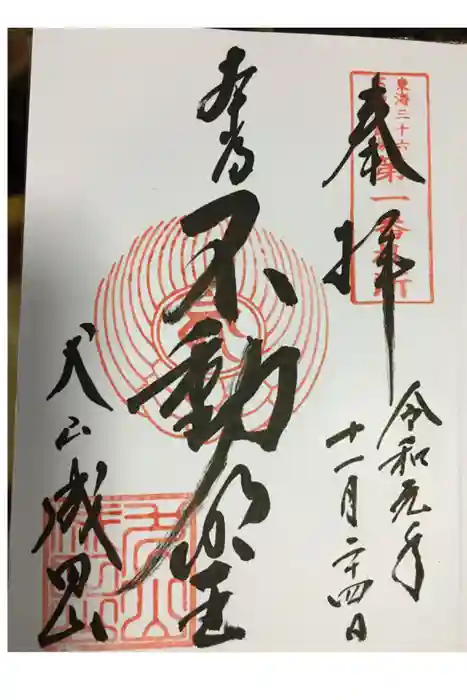 奉拝
東海三十六
第一番札所
令和元年
十一月二十四日
本尊
不動明王
犬山成田山